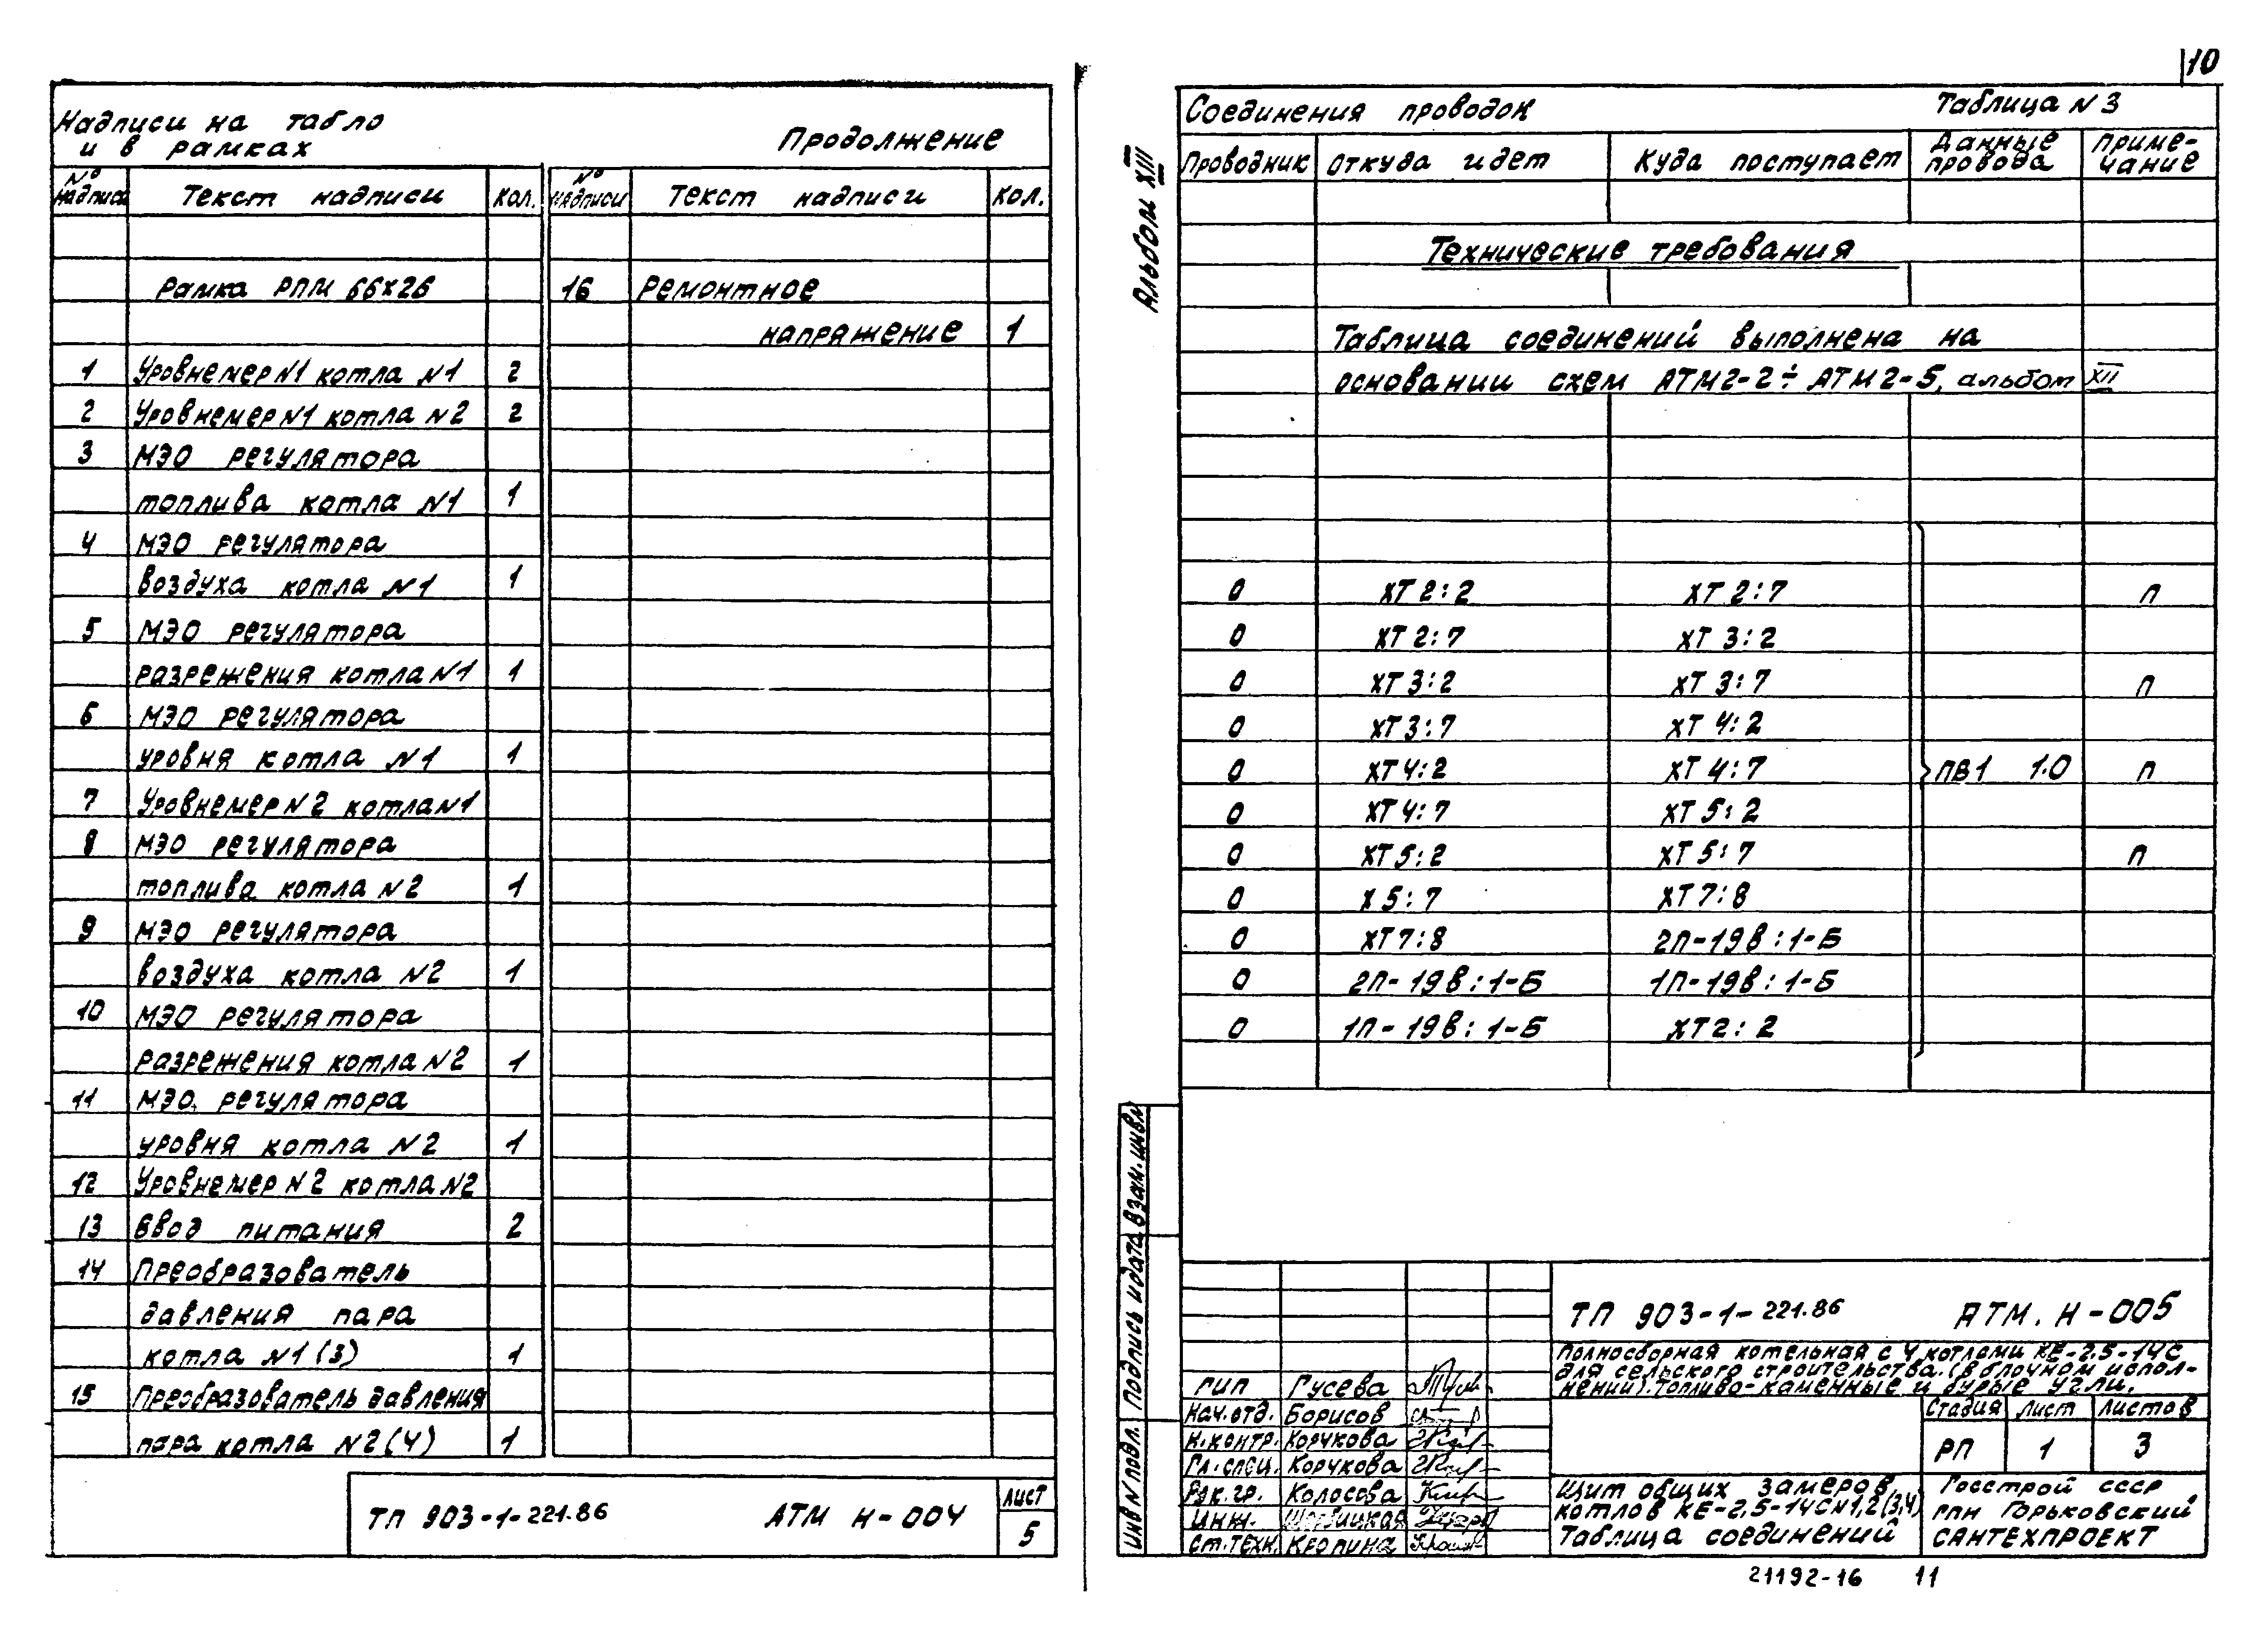 10
Надписи на табло
и в рамках
Продолжение
№ надписи Текст надписи Кол. № надписи Текст надписи Кол.
Рамка РПМ 66х26
16 Ремонтное
напряжение 1
1 Уровнемер N1 котла N1 2
2 Уровнемер N1 котла N2 2
3 МЭО регулятора
топлива котла N1 1
4 МЭО регулятора
воздуха котла N1 1
5 МЭО регулятора
разрежения котла N1 1
6 МЭО регулятора
уровня котла N1 1
7 Уровнемер N2 котла N1
8 МЭО регулятора
топлива котла N2 1
9 МЭО регулятора
воздуха котла N2 1
10 МЭО регулятора
разрежения котла N2 1
11 МЭО регулятора
уровня котла N2 1
12 Уровнемер N2 котла N2
13 Ввод питания 2
14 Преобразователь
давления пара
котла N1 (3) 1
15 Преобразователь давления
пара котла N2 (4) 1
ТП 903-1-221.86 АТМ Н-004
Лист
5
Альбом XIII
Соединения проводок Таблица N 3
Проводник Откуда идет Куда поступает Данные провода Примечание
Технические требования
Таблица соединений выполнена на
основании схем АТМ2-2÷АТМ2-5, альбом XII
0 ХТ 2:2 ХТ 2:7 п
0 ХТ 2:7 ХТ 3:2
0 ХТ 3:2 ХТ 3:7 п
0 ХТ 3:7 ХТ 4:2
0 ХТ 4:2 ХТ 4:7 ПВ1 1.0 п
0 ХТ 4:7 ХТ 5:2
0 ХТ 5:2 ХТ 5:7 п
0 Х 5:7 ХТ 7:8
0 ХТ 7:8 2П-19в:1-Б
0 2П-19в:1-Б 1П-19в:1-Б
0 1П-19в:1-Б ХТ2:2
Взам. инв. N
Подпись и дата
Инв N подл.
ТП 903-1-221.86 АТМ. Н-005
Полносборная котельная с 4 котлами КЕ-2,5-14С
для сельского строительства. (в блочном испол-
нении). Топливо-каменные и бурые угли.
ГИП Гусева
Нач.отд. Борисов
Н.контр. Корчкова
Гл.спец. Корчкова
Рук.гр. Колосова
Инж.
Ст.техн. Кропина
Стадия Лист Листов
РП 1 3
Щит общих замеров
котлов КЕ-2,5-14С N1,2(3,4)
Таблица соединений
Госстрой СССР
ГПИ Горьковский
САНТЕХПРОЕКТ
21192-16 11